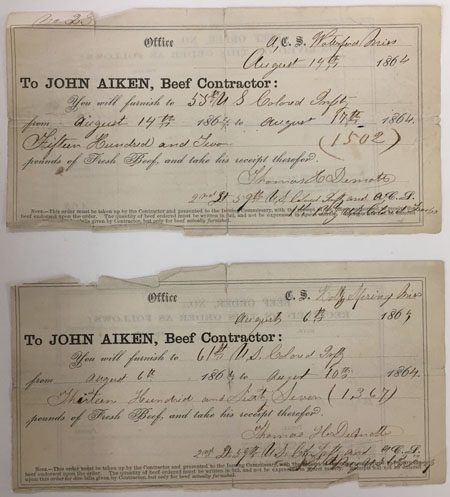 No 23
Office A. C. S. Waterford Miss
August 14th 1864
To JOHN AIKEN, Beef Contractor:
You will furnish to 55th U S Colored Infty
from August 14th 1864 to August 17th 1864
Fifteen Hundred and Two (1502)
pounds of Fresh Beef, and take his receipt therefor.
Thomas
2nd Lt 59th U.S. Colored Infty and A. C. S.
NOTE.—This order must be taken up by the Contractor and presented to the Issuing Commissary, with the
beef endorsed upon the order. The quantity of beef ordered must be written in full, and not be expressed in
given by Contractor, but only for beef actually furnished.
Office C. S. Holly Springs Miss
August 6th 1864
To JOHN AIKEN, Beef Contractor:
You will furnish to 61st U.S. Colored Infty
from August 6th 1864 to August 10th 1864
Thirteen Hundred and Sixty Seven (1,367)
pounds of Fresh Beef, and take his receipt therefor.
Thomas
2nd Lt 59th U.S. and A. C. S.
NOTE.—This order must be taken up by the Contractor and presented to the Issuing Commissary, with the
beef endorsed upon the order. The quantity of beef ordered must be written in full, and not be expressed in
given by Contractor, but only for beef actually furnished.